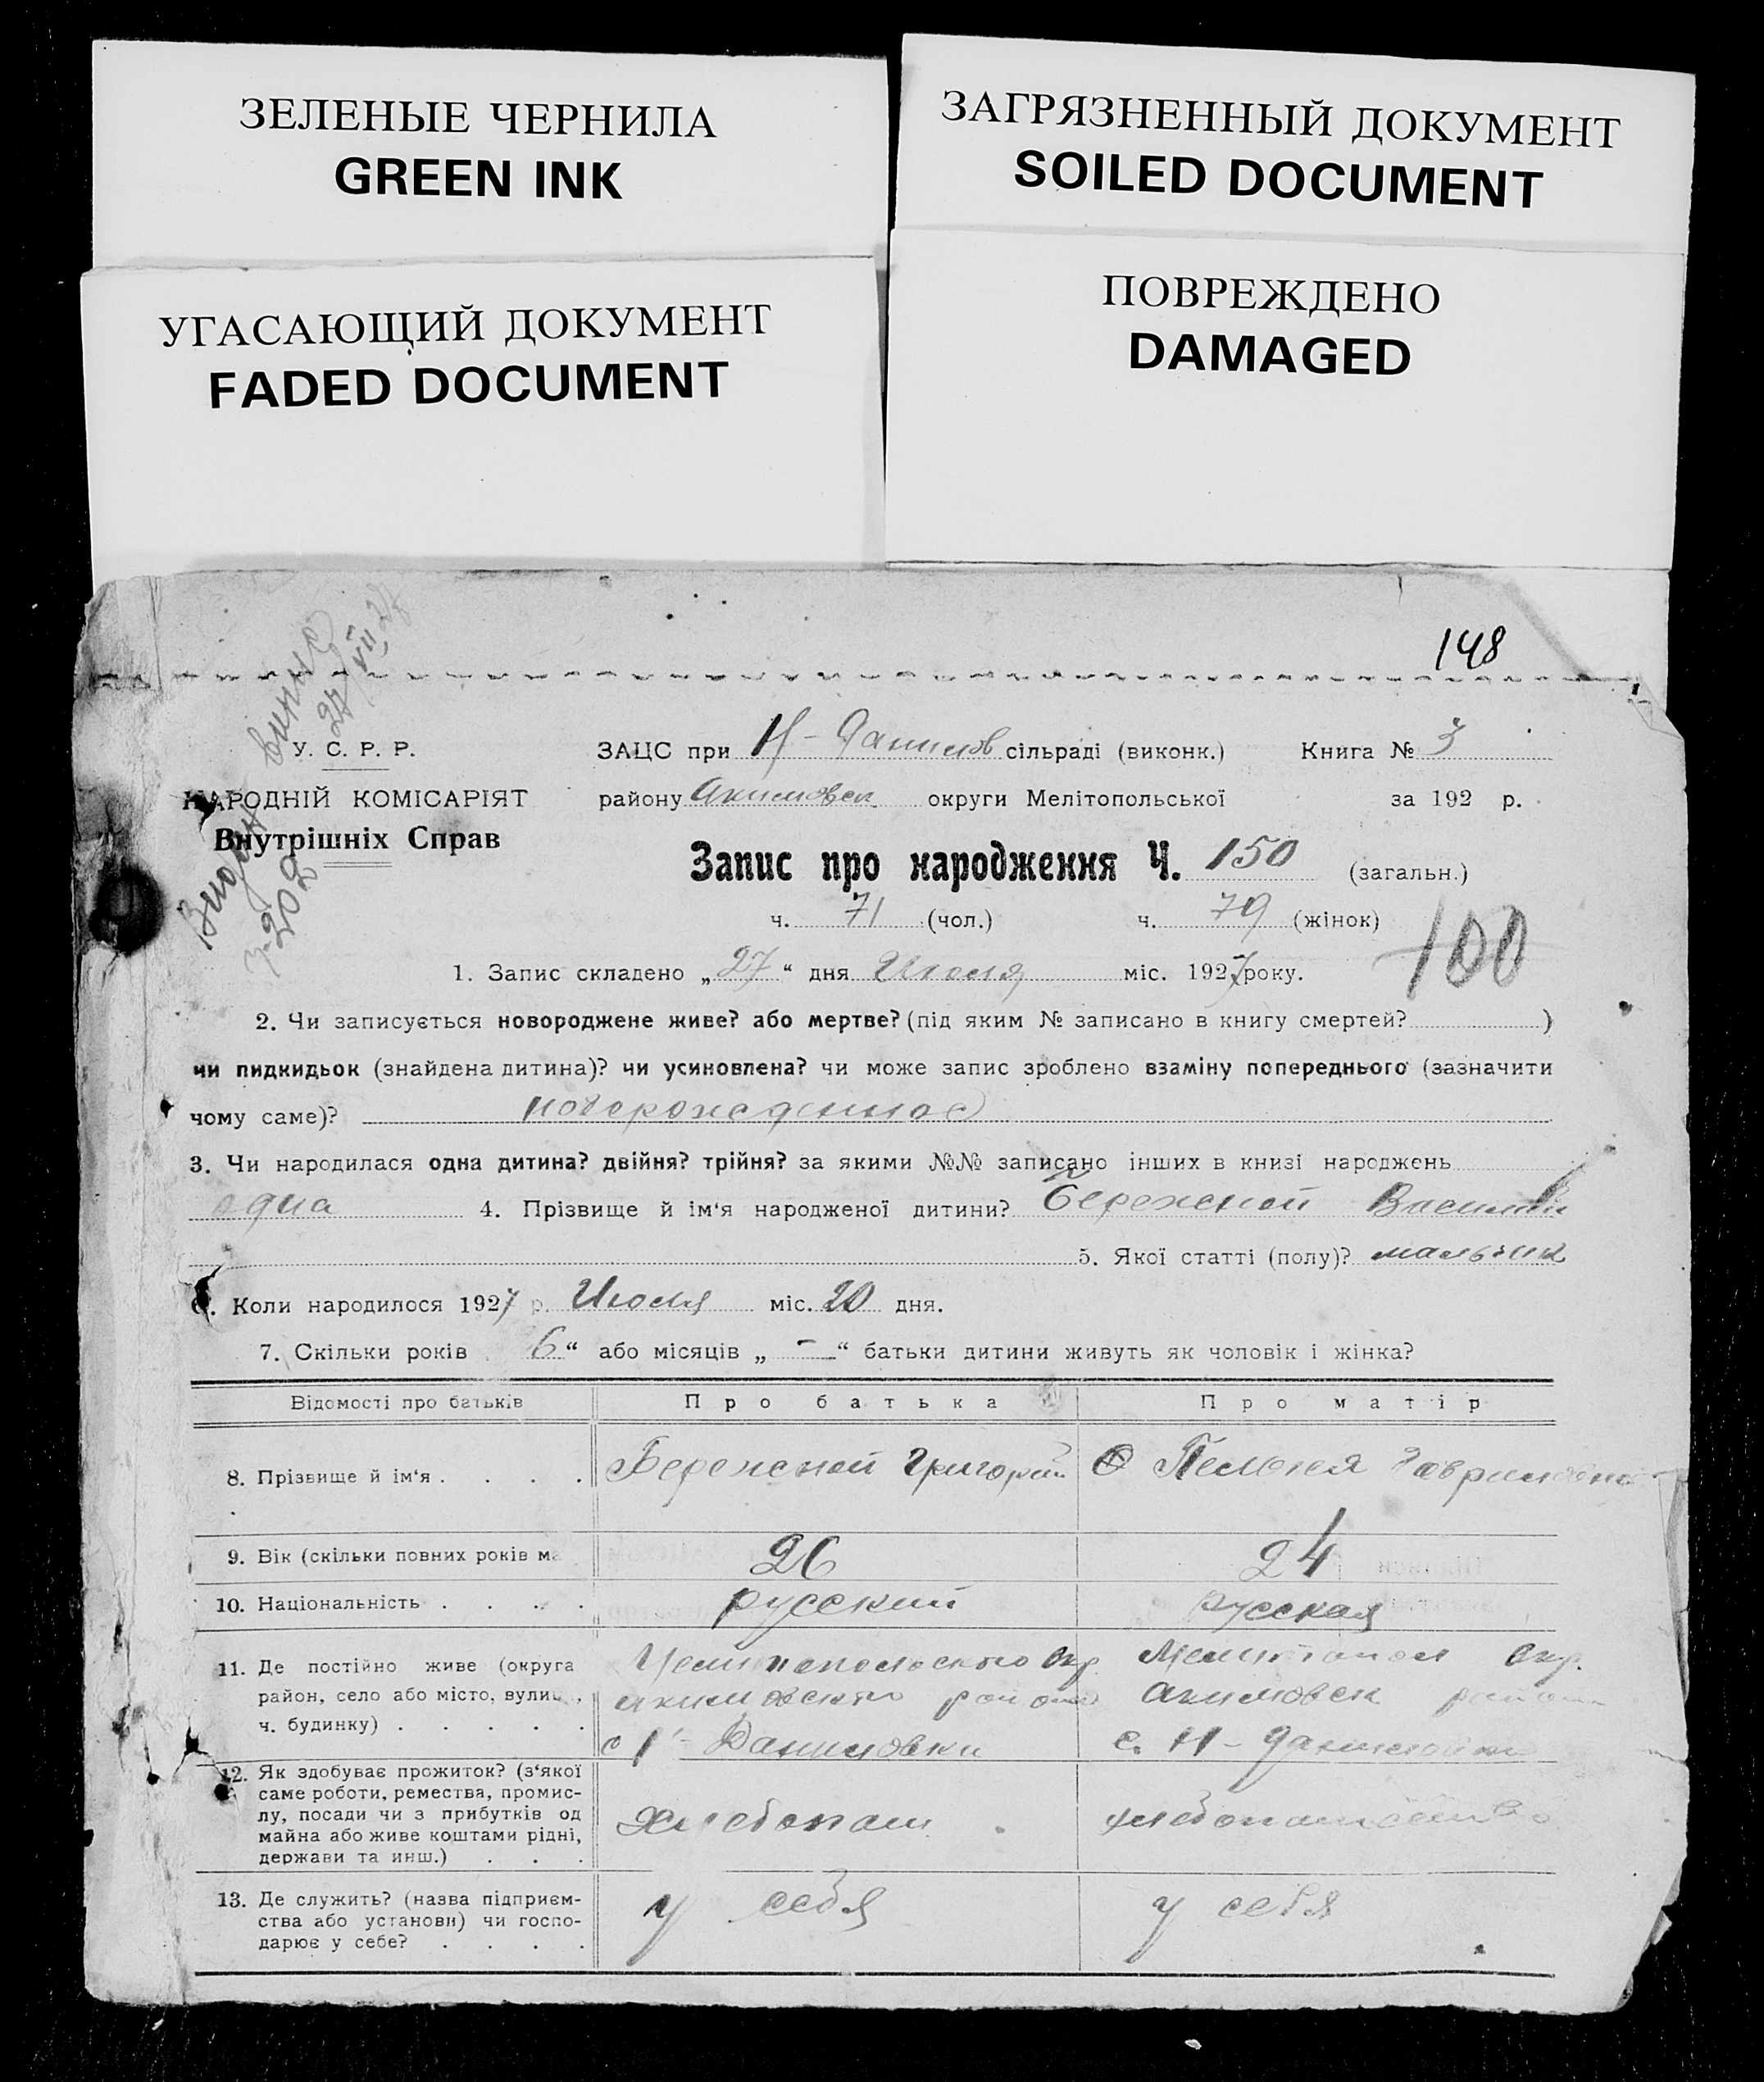 ЗЕЛЕНЫЕ ЧЕРНИЛА
GREEN INK
ЗАГРЯЗНЕННЫЙ ДОКУМЕНТ
SOILED DOCUMENT
УГАСАЮЩИЙ ДОКУМЕНТ
FADED DOCUMENT
ПОВРЕЖДЕНО
DAMAGED
148
У. С. Р. Р.
НАРОДНІЙ КОМІСАРІЯТ
Внутрішніх Справ
ЗАЦС при Н-Данилов сільраді (виконк.) Книга № 3
району Акимовск округи Мелітопольської за 192 р.
Запис про народження Ч. 150 (загальн.)
ч. 71 (чол.) ч. 79 (жінок)
100
1. Запис складено „27“ дня Июля міс. 1927 року.
2. Чи записується новороджене живе? або мертве? (під яким № записано в книгу смертей? )
чи пидкидьок (знайдена дитина)? чи усиновлена? чи може запис зроблено взаміну попереднього (зазначити
чому саме)? новорожденное
3. Чи народилася одна дитина? двійня? трійня? за якими №№ записано інших в книзі народжень
одна 4. Прізвище й ім‘я народженої дитини? Бережной Василий
5. Якої статті (полу)? мальчик
6. Коли народилося 1927 р. Июля міс. 20 дня.
7. Скільки років 6“ або місяців „ – “ батьки дитини живуть як чоловік і жінка?
Відомості про батьків Про батька Про матір
8. Прізвище й ім‘я . . . . Бережной Григорий
9. Вік (скільки повних років ма 26 24
10. Національність . . . . русский русская
11. Де постійно живе (округа
район, село або місто, вулиц.,
ч. будинку) . . . . .
Мелитопольского Окр.
Акимовского района
с Н-Даниловки
Мелитопол Окр.
Акимовск района
с. Н-Даниловки
12. Як здобуває прожиток? (з‘якої
саме роботи, ремества, промис-
лу, посади чи з прибутків од
майна або живе коштами рідні,
держави та инш.) . . .
Хлебопаш.
хлебопашество
13. Де служить? (назва підприєм-
ства або установи) чи госпо-
дарює у себе? . . . .
у себя
у себя